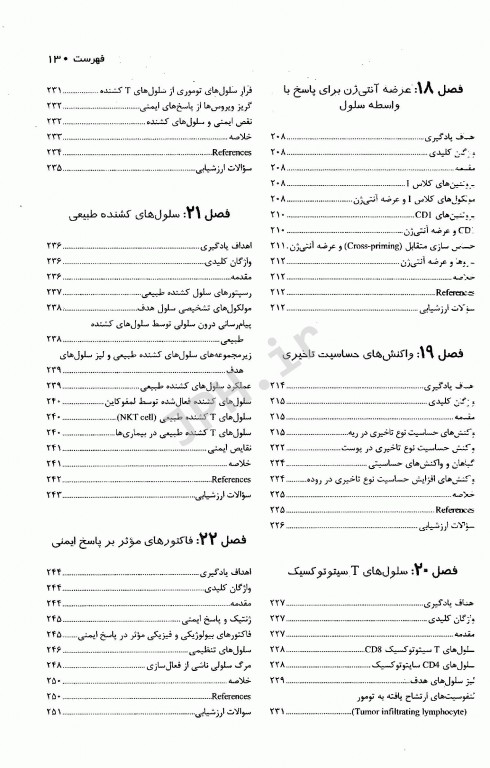 فهرست • ۱۳
فصل ۱۸: عرضه آنتی‌ژن برای پاسخ با
واسطه سلول
هدف یادگیری..................۲۰۸
واژگان کلیدی..................۲۰۸
مقدمه..................۲۰۸
پروتئین‌های کلاس I..................۲۰۸
مولکول‌های کلاس I و عرضه آنتی‌ژن..................۲۰۸
پروتئین‌های CD1..................۲۱۰
CD1 و عرضه آنتی‌ژن..................۲۱۰
حساس سازی متقابل (Cross-priming) و عرضه آنتی‌ژن..۲۱۱
و عرضه آنتی‌ژن..................۲۱۲
خلاصه..................۲۱۲
References..................۲۱۲
سؤالات ارزشیابی..................۲۱۲
فصل ۱۹: واکنش‌های حساسیت تاخیری
هدف یادگیری..................۲۱۴
واژگان کلیدی..................۲۱۵
مقدمه..................۲۱۵
واکنش‌های حساسیت نوع تاخیری در ریه..................۲۱۵
واکنش حساسیت نوع تاخیری در پوست..................۲۲۲
گیاهان و واکنش‌های حساسیتی..................۲۲۴
واکنش‌های افزایش حساسیت نوع تاخیری در روده..................۲۲۴
خلاصه..................۲۲۵
References..................۲۲۵
سؤالات ارزشیابی..................۲۲۶
فصل ۲۰: سلول‌های T سیتوتوکسیک
هداف یادگیری..................۲۲۷
واژگان کلیدی..................۲۲۷
مقدمه..................۲۲۷
سلول‌های T سیتوتوکسیک CD8..................۲۲۸
سلول‌های CD4 سایتوتوکسیک..................۲۲۸
لیز سلول‌های هدف..................۲۲۹
لنفوسیت‌های ارتشاح یافته به تومور
(Tumor infiltrating lymphocyte)..................۲۳۱
فرار سلول‌های توموری از سلول‌های T کشنده..................۲۳۱
گریز ویروس‌ها از پاسخ‌های ایمنی..................۲۳۲
نقص ایمنی و سلول‌های کشنده..................۲۳۲
خلاصه..................۲۳۳
References..................۲۳۴
سؤالات ارزشیابی..................۲۳۵
فصل ۲۱: سلول‌های کشنده طبیعی
اهداف یادگیری..................۲۳۶
واژگان کلیدی..................۲۳۶
مقدمه..................۲۳۶
رسپتورهای سلول کشنده طبیعی..................۲۳۷
مولکول‌های تشخیصی سلول هدف..................۲۳۸
پیام‌رسانی درون سلولی توسط سلول‌های کشنده
طبیعی..................۲۳۸
زیرمجموعه‌های سلول‌های کشنده طبیعی و لیز سلول‌های
هدف..................۲۳۹
عملکرد سلول‌های کشنده طبیعی..................۲۳۹
سلول‌های کشنده فعال‌شده توسط لمفوکاین..................۲۴۰
سلول‌های T کشنده طبیعی (NKT cell)..................۲۴۰
سلول‌های T کشنده طبیعی در بیماری‌ها..................۲۴۰
نقایص ایمنی..................۲۴۱
خلاصه..................۲۴۱
References..................۲۴۲
سؤالات ارزشیابی..................۲۴۳
فصل ۲۲: فاکتورهای مؤثر بر پاسخ ایمنی
اهداف یادگیری..................۲۴۴
واژگان کلیدی..................۲۴۴
مقدمه..................۲۴۴
ژنتیک و پاسخ ایمنی..................۲۴۵
فاکتورهای بیولوژیکی و فیزیکی مؤثر در پاسخ ایمنی..................۲۴۵
سلول‌های تنظیمی..................۲۴۶
مرگ سلولی ناشی از فعال‌سازی..................۲۴۸
خلاصه..................۲۵۰
References..................۲۵۰
سوالات ارزشیابی..................۲۵۱